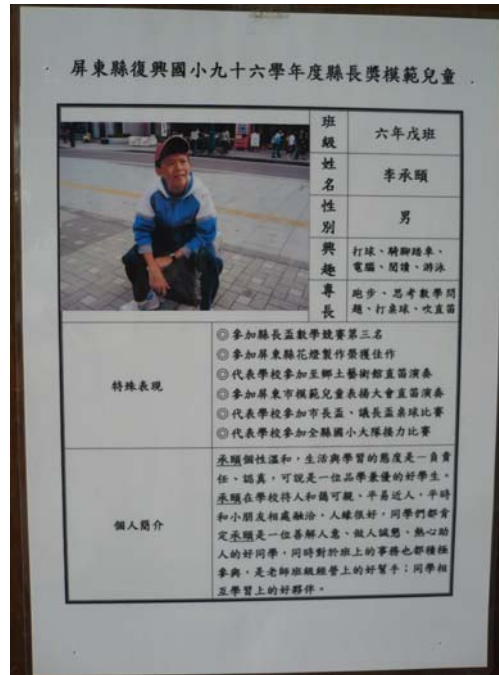 屏東縣復興國小九十六學年度縣長獎模範兒童
班級
六年戊班
姓名
李承頤
性別
男
興趣
打球、騎腳踏車、
電腦、閱讀、游泳
專長
跑步、思考數學問
題、打桌球、吹直笛
特殊表現
◎參加縣長盃數學競賽第三名
◎參加屏東縣花燈製作榮獲佳作
◎代表學校參加至鄉土藝術館直笛演奏
◎參加屏東市模範兒童表揚大會直笛演奏
◎代表學校參加市長盃、議長盃桌球比賽
◎代表學校參加全縣國小大隊接力比賽
個人簡介
承頤個性溫和，生活與學習的態度是一負責
任、認真，可說是一位品學兼優的好學生。
承頤在學校待人和藹可親、平易近人，平時
和小朋友相處融洽，人緣很好，同學們都肯
定承頤是一位善解人意、做人誠懇、熱心助
人的好同學，同時對於班上的事務也都積極
參與，是老師班級經營上的好幫手；同學相
互學習上的好夥伴。